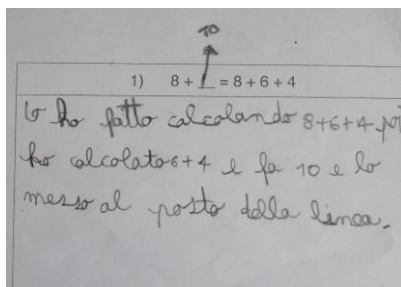 10
1) 8 + __ = 8 + 6 + 4
lo ho fatto calcolando 8+6+4 poi
ho calcolato 6+4 e fa 10 e lo
messo al posto della linea.